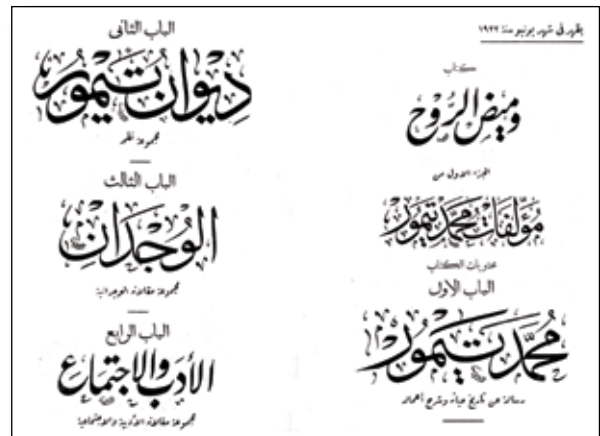 يظهر في شهر يونيو سنة ١٩٢٢
كتاب
وميض الروح
الجزء الأول من
مؤلفات محمد تيمور
محتويات الكتاب
الباب الأول
محمد تيمور
رسالة عن تاريخ حياته وشرح أعماله
الباب الثاني
ديوان تيمور
مجموعة نظمه
الباب الثالث
الوجدان
مجموعة مقالاته الوجدانية
الباب الرابع
الأدب والاجتماع
مجموعة مقالاته الأدبية والاجتماعية